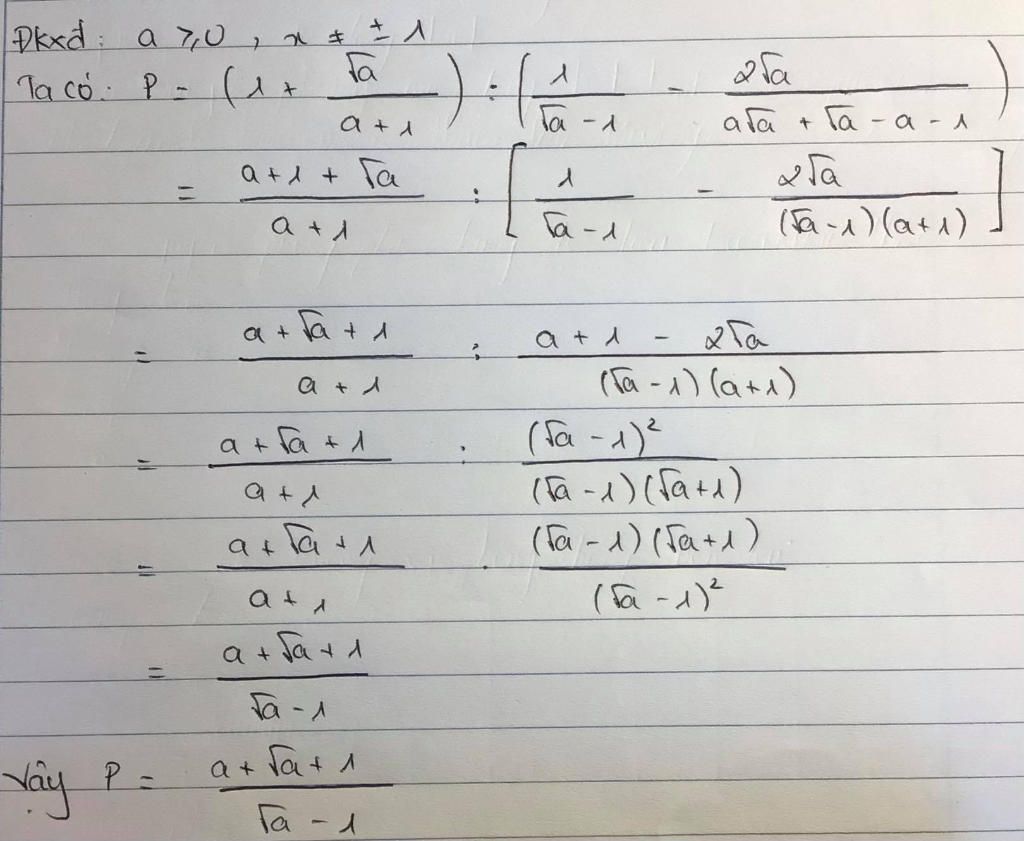 Đkxđ: a ⩾ 0, x ≠ ± 1
Ta có: P = (1 + √a/(a + 1)) : (1/(√a - 1) - 2√a/(a√a + √a - a - 1))
= (a + 1 + √a)/(a + 1) : [1/(√a - 1) - 2√a/((√a - 1)(a + 1))]
= (a + √a + 1)/(a + 1) : (a + 1 - 2√a)/((√a - 1)(a + 1))
= (a + √a + 1)/(a + 1) : (√a - 1)²/((√a - 1)(√a + 1))
= (a + √a + 1)/(a + 1) . ((√a - 1)(√a + 1))/(√a - 1)²
= (a + √a + 1)/(√a - 1)
Vậy P = (a + √a + 1)/(√a - 1)